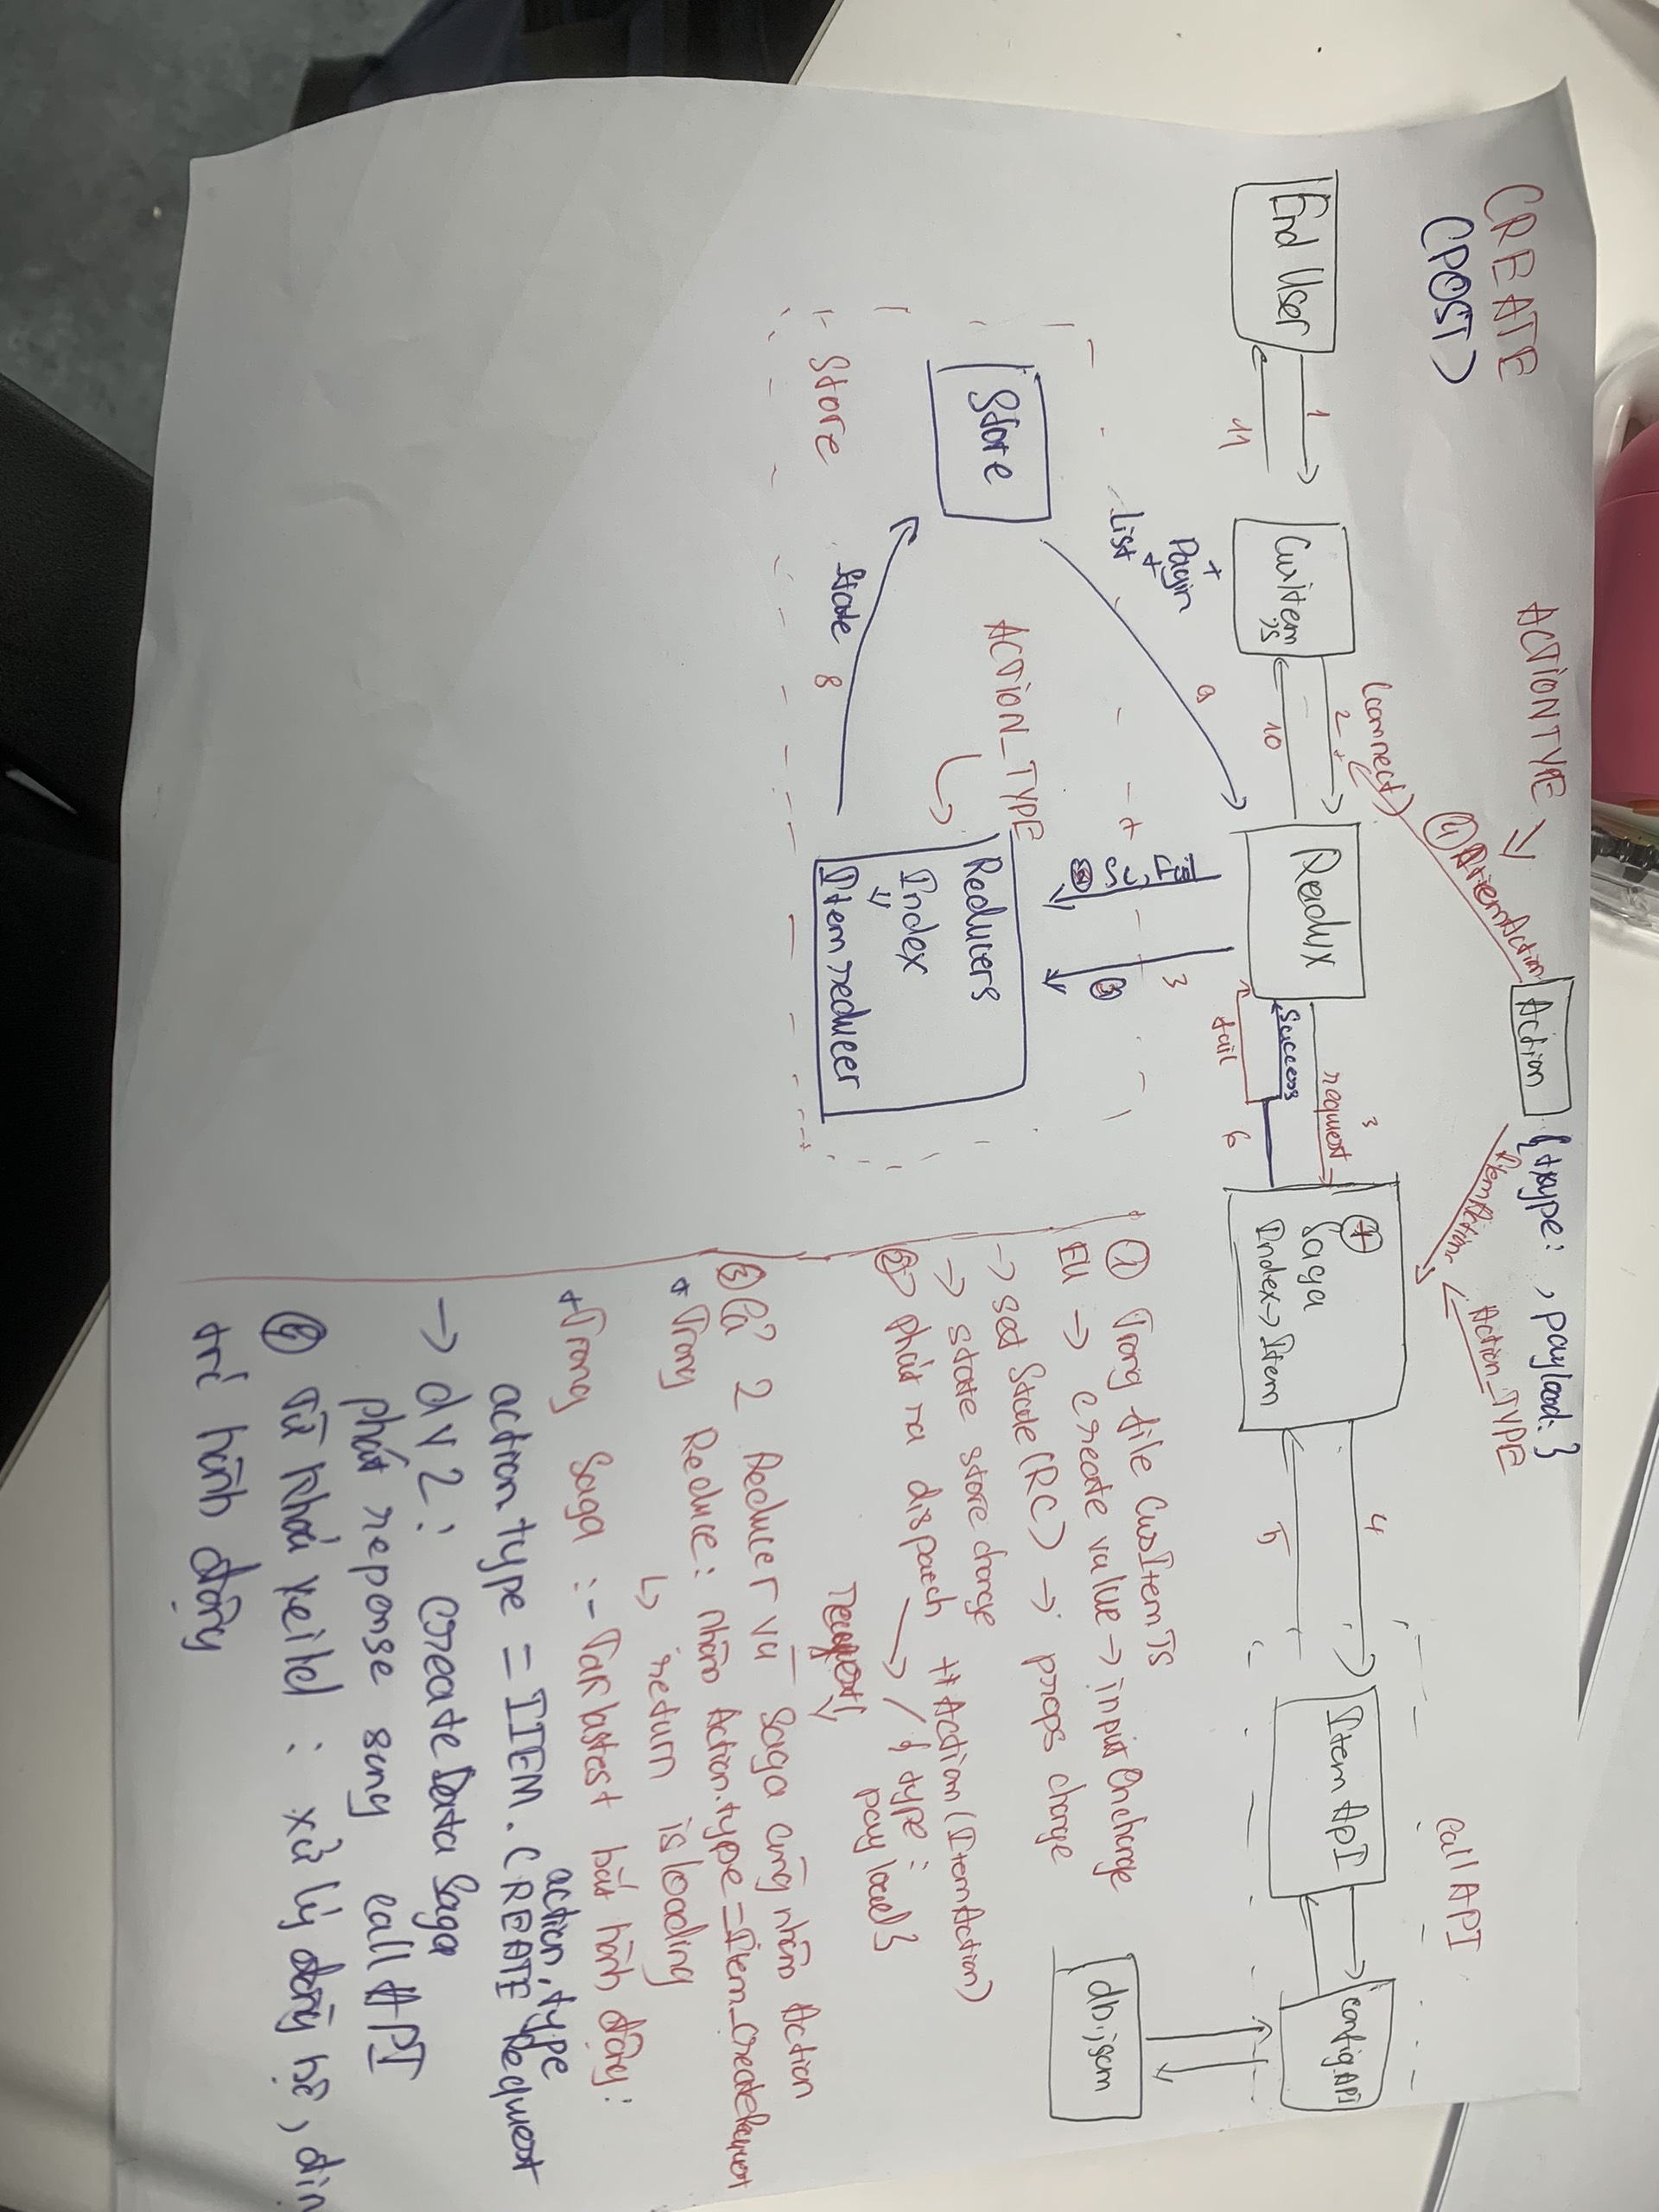 CREATE
(POST)
ACTIONTYPE
Action
{type: , payload: }
ItemAction
Action_TYPE
call API
(connect)
End User
1
11
CusItem
JS
2
10
Redux
3
request
Success
fail
6
+
Saga
Index → Item
4
5
Item API
config.API
db.json
+
Pagin
+
List
9
Sc, Fail
3
Store
ACTION_TYPE
Reducers
Index
Item reducer
State
8
Store
① Trong file CusItem JS
EU → create value → input Onchange
→ set State (RC) → props change
→ state store change
② phát ra dispatch Action (ItemAction)
→ { type :
payload }
request
③ Cả 2 Reducer và Saga cùng nhận Action
+ Trong Reduce : nhận Action.type = Item_CreateRequest
↳ return isloading
+ Trong Saga : - Taklastest bắt hành động :
action.type
action type = ITEM. CREATE Request
→ dv2 : create Data Saga
phát reponse sang call API
④ Từ khoá yeild : xử lý đồng bộ ,
hành động